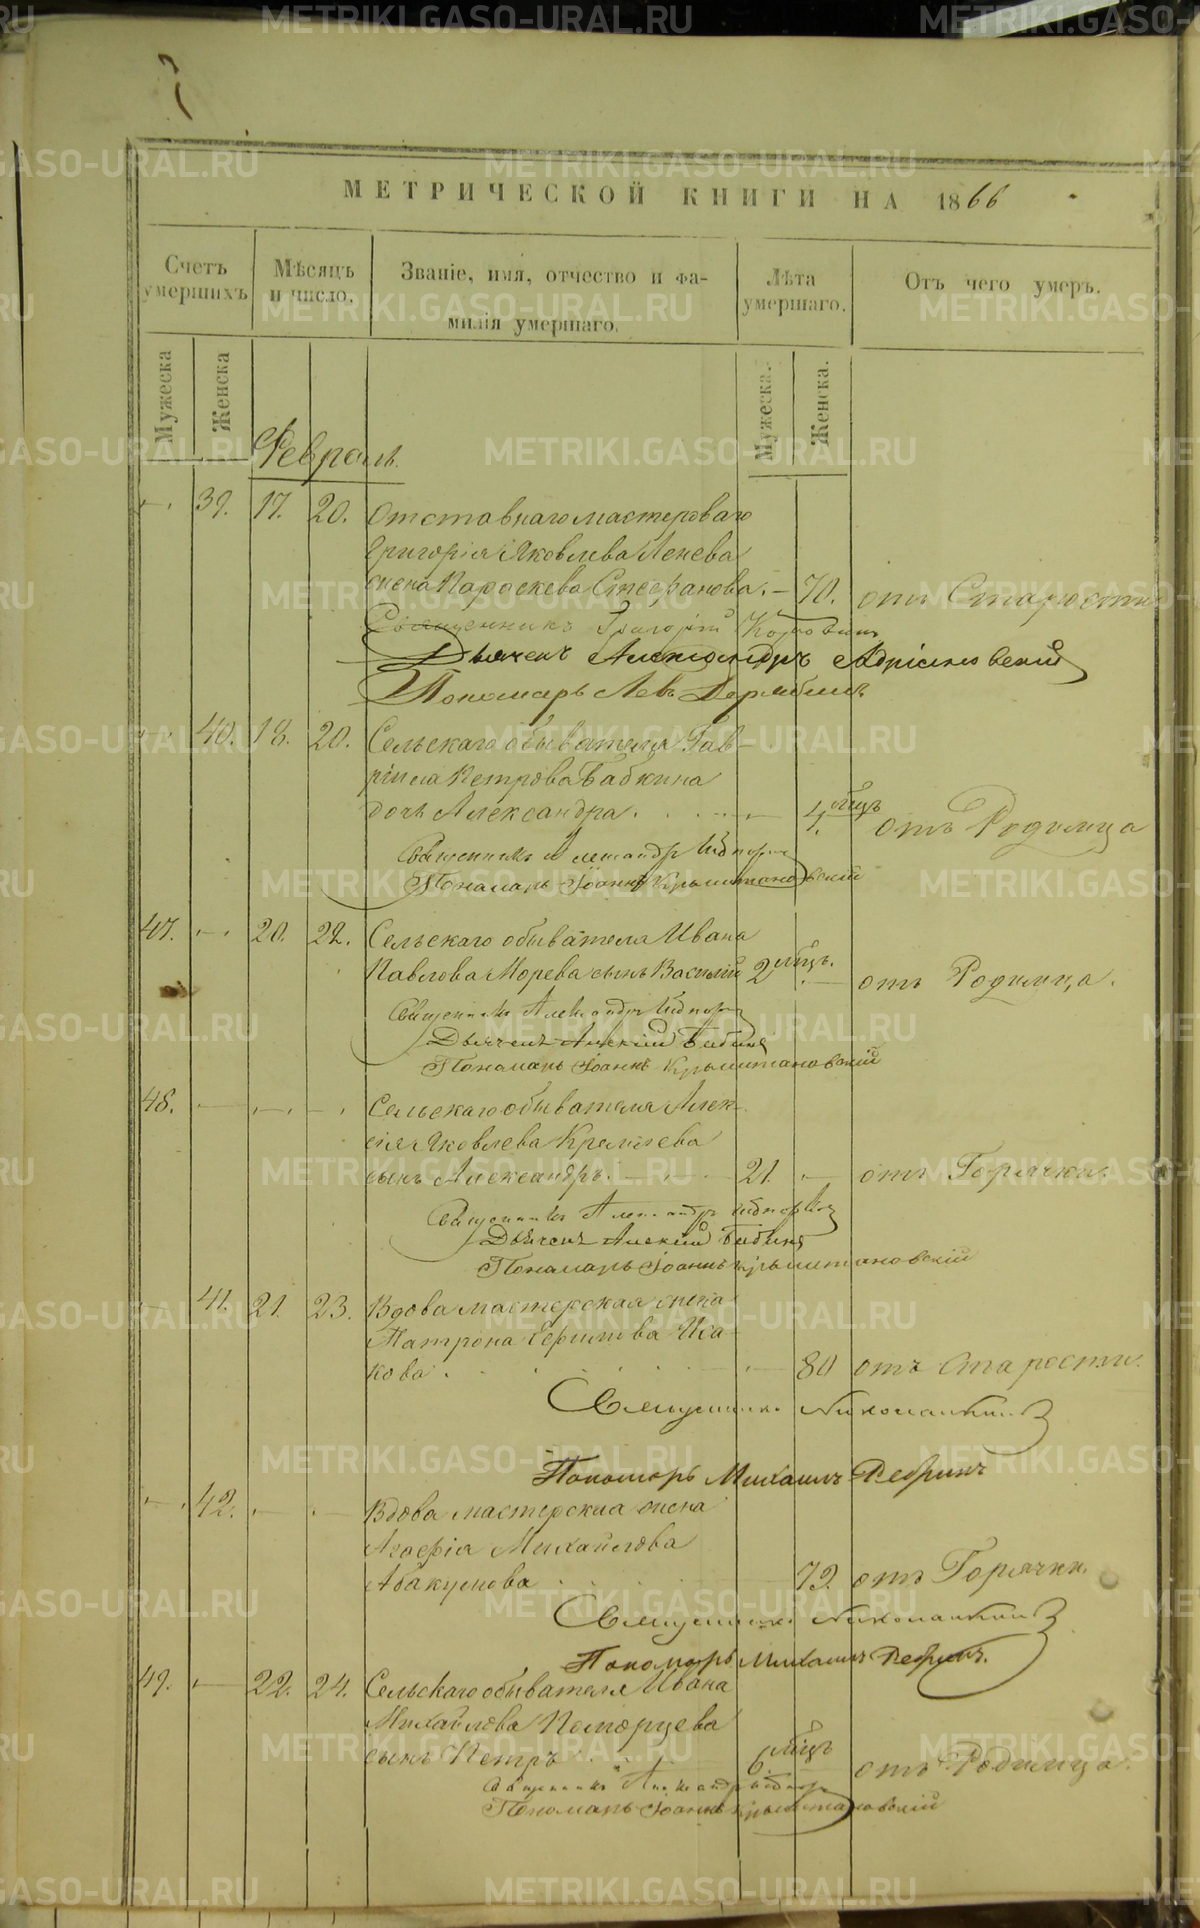 МЕТРИЧЕСКОЙ КНИГИ НА 1866
Счетъ умершихъ.
Мѣсяцъ и число.
Званіе, имя, отчество и фа-
милія умершаго.
Лѣта умершаго.
Отъ чего умеръ.
Мужеска
Женска
Мужеска.
Женска.
Февраль.
39. 17. 20. Отставнаго мастероваго
Григорія Яковлева Ленева
жена Параскева Стефанова. — 70. отъ Старости
Священникъ Григорій
Дьячекъ Александръ Адріановскій
Пономарь Левъ Дерябинъ
40. 18. 20. Сельскаго обывателя Гав-
ріила Петрова Бабкина
дочь Александра. 4. мѣц. отъ Родимца
Священникъ Александръ
Пономарь Іоаннъ
47. 20. 22. Сельскаго обывателя Ивана
Павлова Морева сынъ Василій 2 мѣц. отъ Родимца.
Священникъ Александръ
Дьячекъ Алексій Бибинъ
Пономарь Іоаннъ
48. Сельскаго обывателя Алек-
сія Яковлева
сынъ Александръ. 21. отъ Горячки.
Священникъ Александръ
Дьячекъ Алексій Бибинъ
Пономарь Іоаннъ
41. 21. 23. Вдова мастерская жена
Матрона Ефимова Иса-
кова. 80 отъ Старости.
Священникъ
Пономарь Михаилъ Ребринъ
42. Вдова мастерская жена
Агафія Михайлова
Абакумова 79. отъ Горячки.
Священникъ
Пономарь Михаилъ Ребринъ.
49. 22. 24. Сельскаго обывателя Ивана
Михайлова Поморцева
сынъ Петръ 6. мѣц. отъ Родимца.
Священникъ Александръ
Пономарь Іоаннъ
METRIKI.GASO-URAL.RU